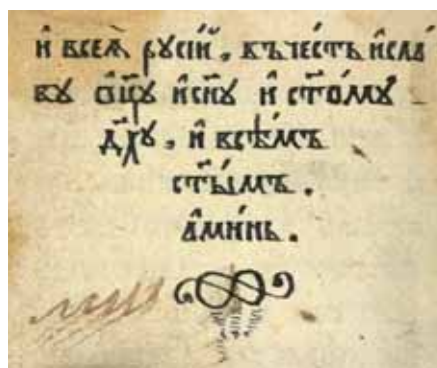 и҆ всеѧ̀ рꙋсі́и, въче́сть и҆сла́
вꙋ ѻ҆ц҃ꙋ и҆сн҃ꙋ и҆ ст҃о́мꙋ
дх҃ꙋ, и҆ всѣ́мъ
ст҃ы́мъ.
а҆ми́нь.